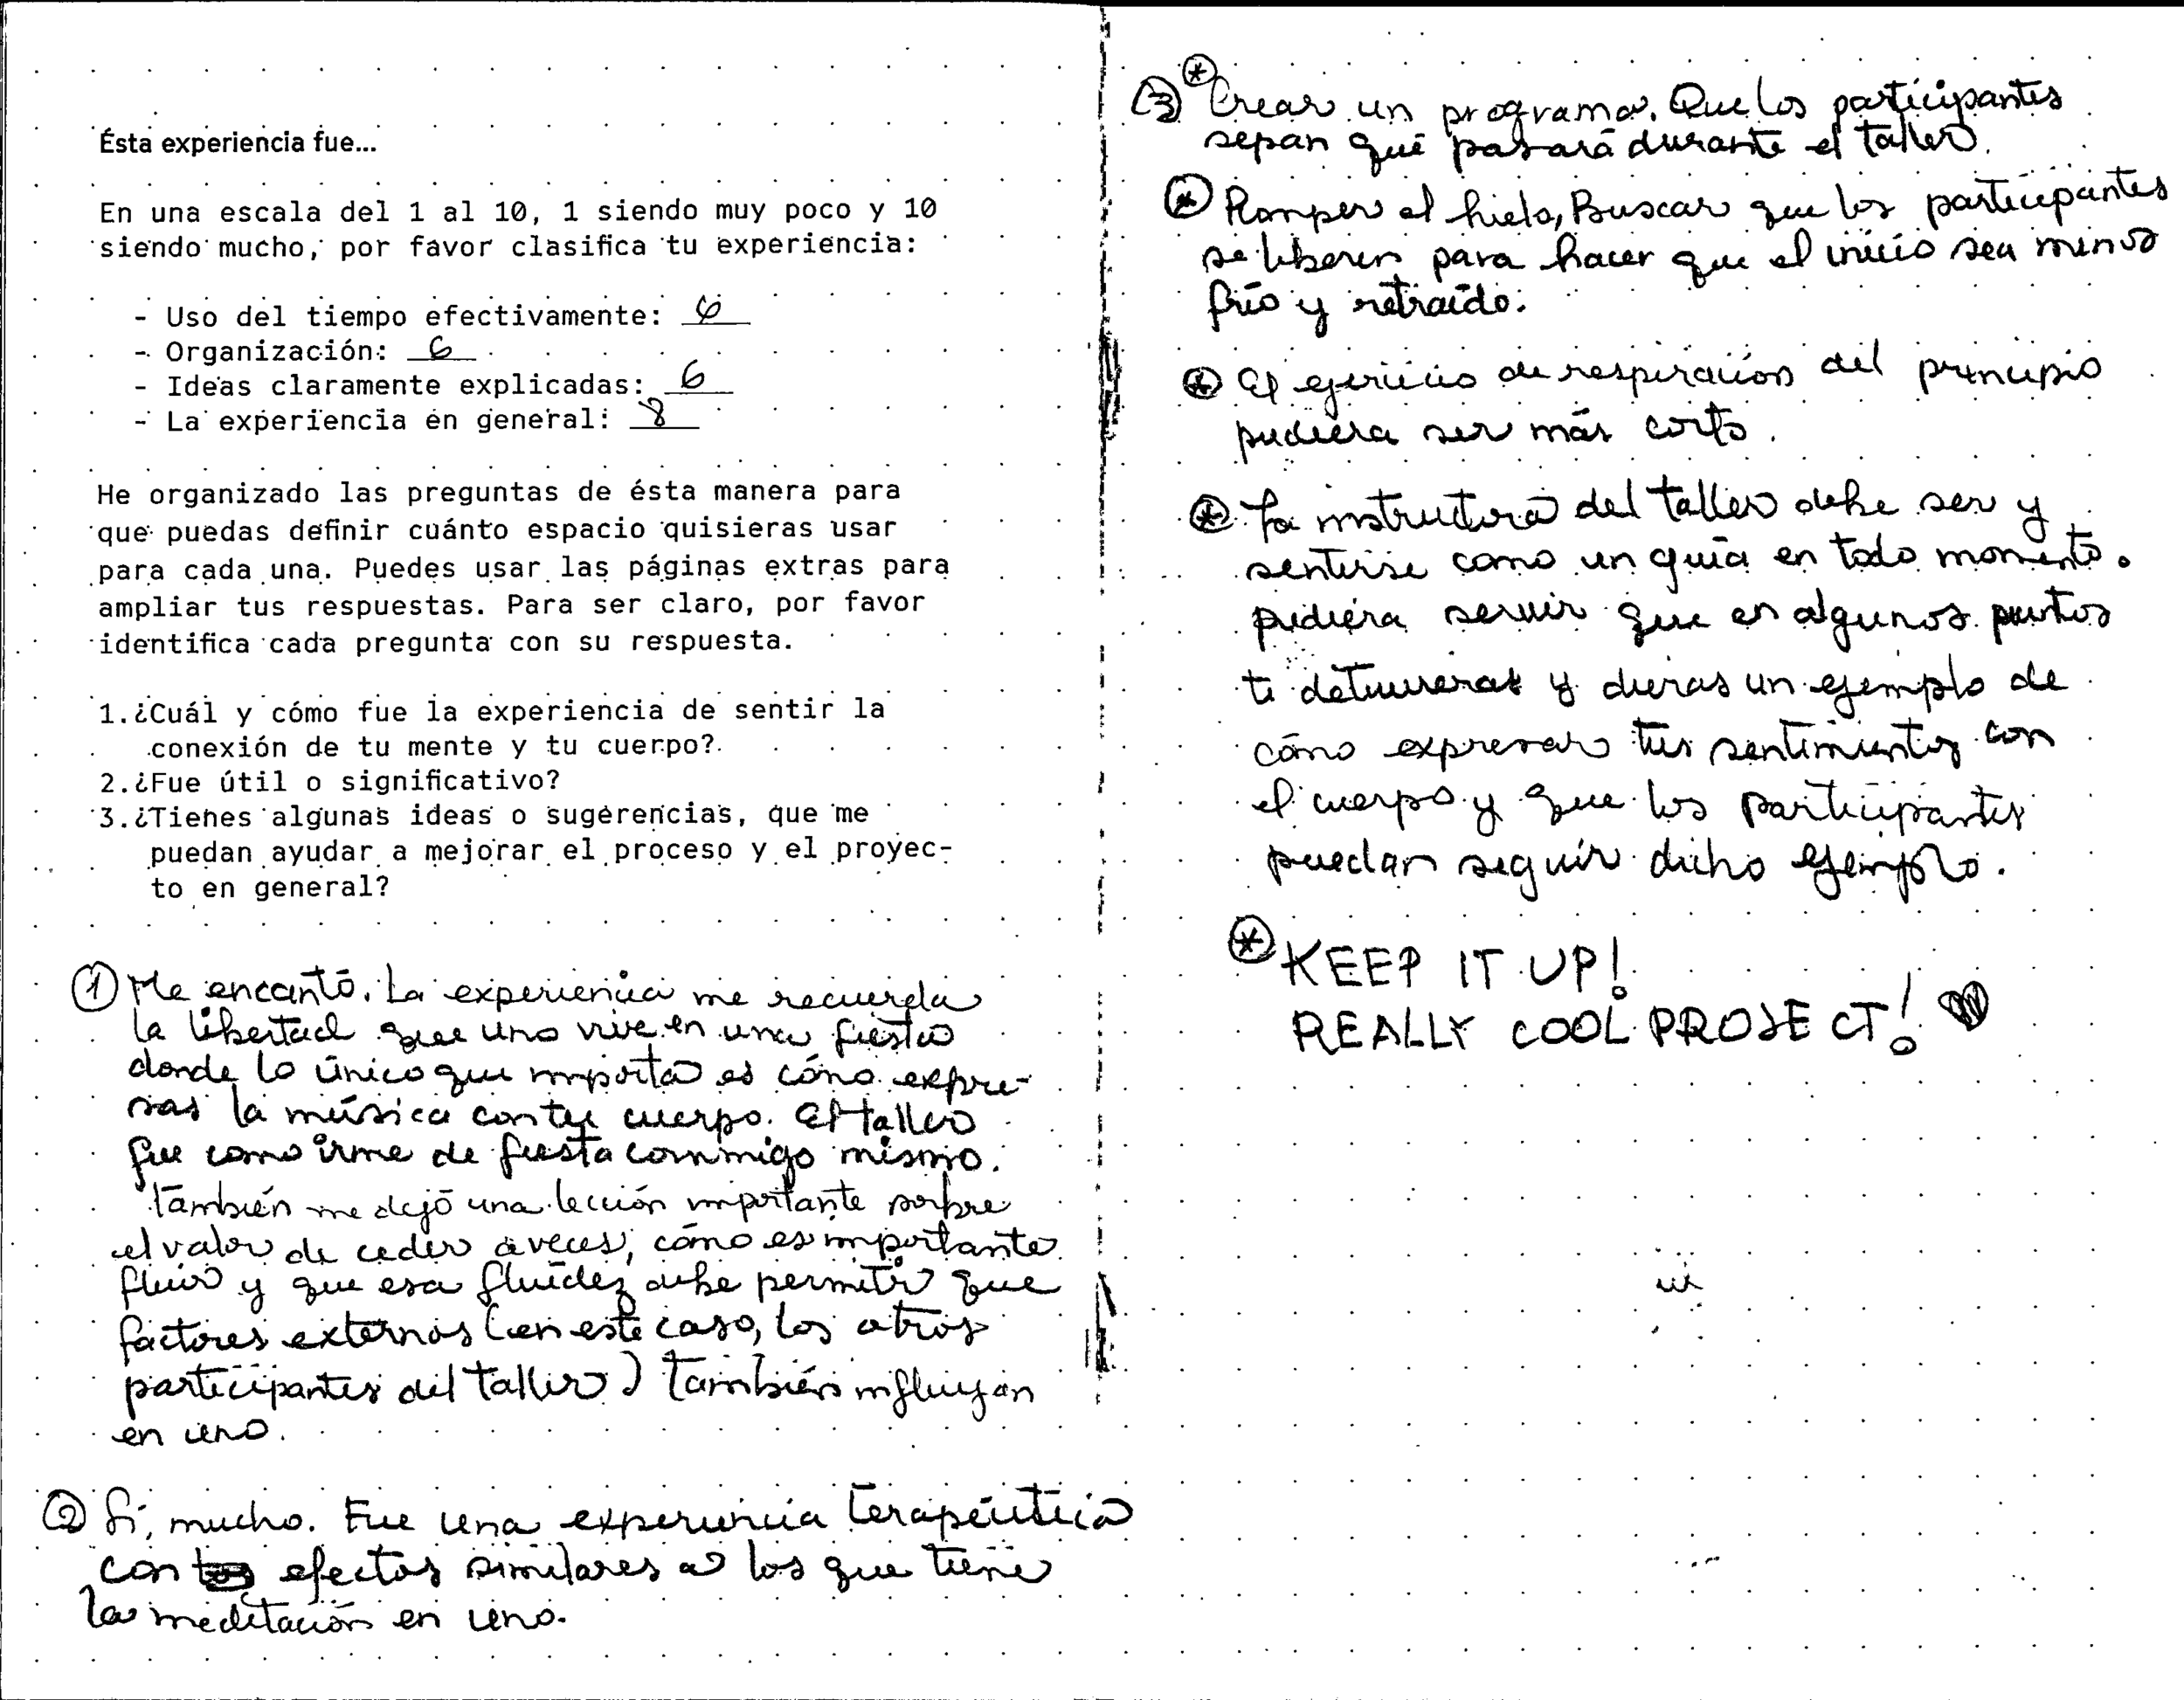 Ésta experiencia fue...
En una escala del 1 al 10, 1 siendo muy poco y 10
siendo mucho, por favor clasifica tu experiencia:
- Uso del tiempo efectivamente: 6
- Organización: 6
- Ideas claramente explicadas: 6
- La experiencia en general: 8
He organizado las preguntas de ésta manera para
que puedas definir cuánto espacio quisieras usar
para cada una. Puedes usar las páginas extras para
ampliar tus respuestas. Para ser claro, por favor
identifica cada pregunta con su respuesta.
1.¿Cuál y cómo fue la experiencia de sentir la
conexión de tu mente y tu cuerpo?
2.¿Fue útil o significativo?
3.¿Tienes algunas ideas o sugerencias, que me
puedan ayudar a mejorar el proceso y el proyec-
to en general?
① Me encantó. La experiencia me recuerda
la libertad que uno vive en una fiesta
donde lo único que importa es cómo expre-
sas la música con tu cuerpo. El taller
fue como irme de fiesta conmigo mismo.
También me dejó una lección importante sobre
el valor de ceder a veces, cómo es importante
fluir y que esa fluidez debe permitir que
factores externos (en este caso, los otros
participantes del taller) también influyan
en uno.
② Sí, mucho. Fue una experiencia terapéutica
con efectos similares a los que tiene
la meditación en uno.
③ * Crear un programa. Que los participantes
sepan qué pasará durante el taller.
* Romper el hielo, Buscar que los participantes
se liberen para hacer que el inicio sea menos
frío y retraído.
* El ejercicio de respiración del principio
pudiera ser más corto.
* La instructora del taller debe ser y
sentirse como un guía en todo momento.
pudiera servir que en algunos puntos
te detuvieras y dieras un ejemplo de
cómo expresar tus sentimientos con
el cuerpo y que los participantes
puedan seguir dicho ejemplo.
* KEEP IT UP!
REALLY COOL PROJECT!